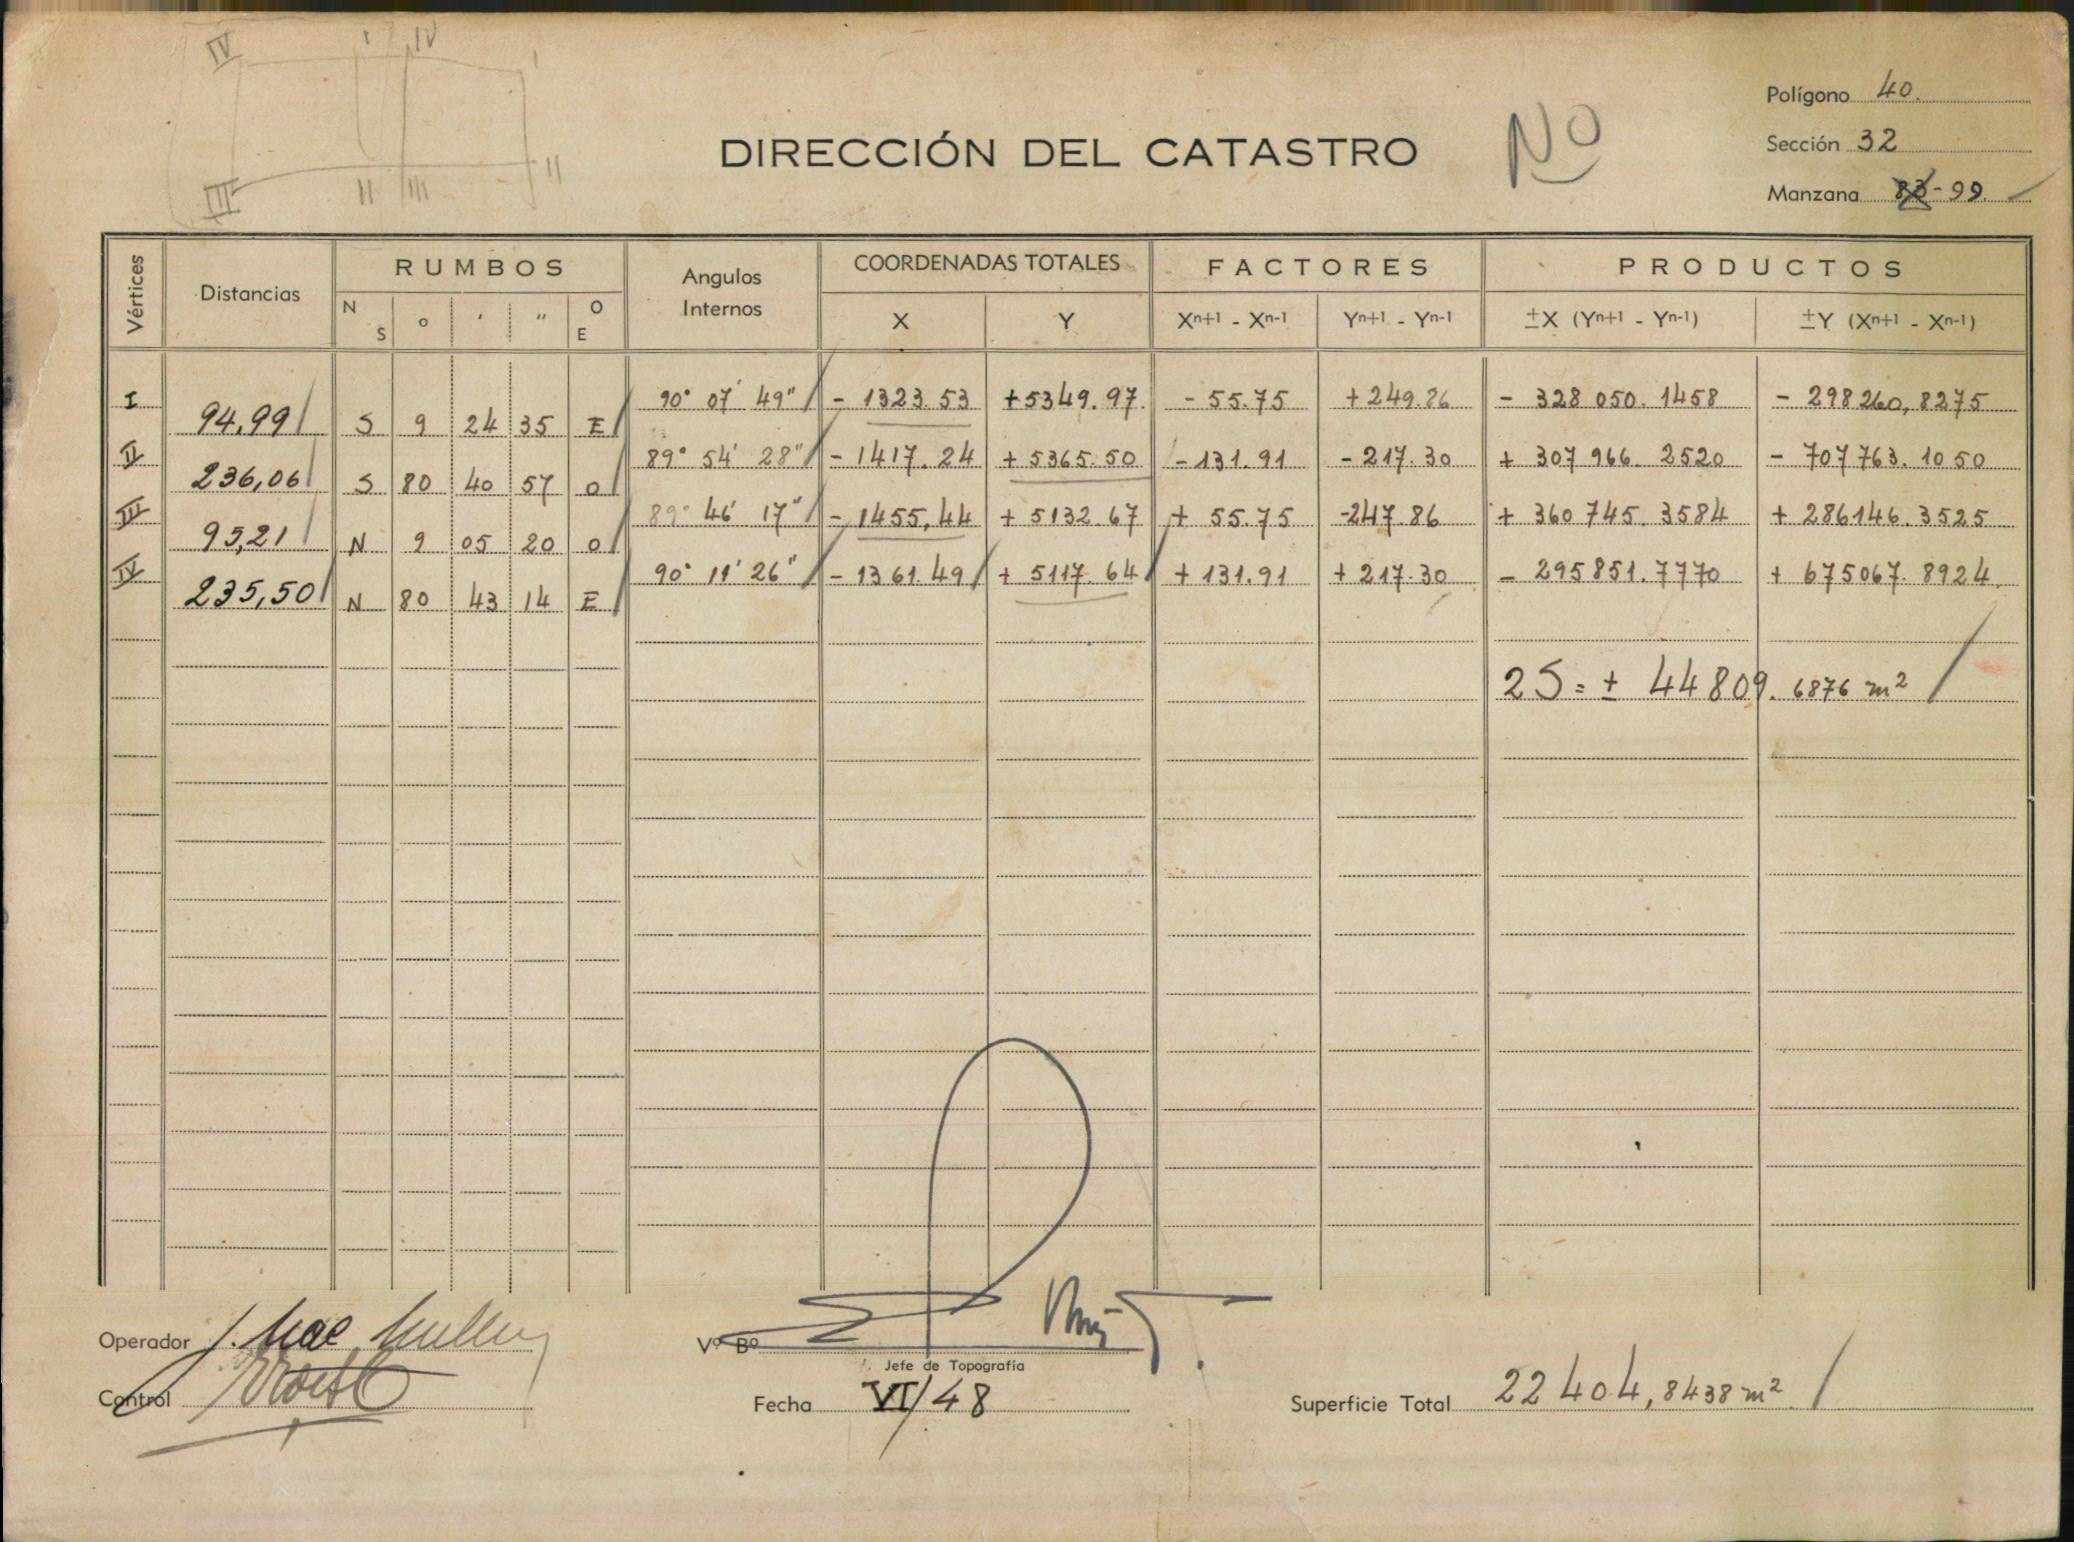 IV I IV I
III II III II
DIRECCIÓN DEL CATASTRO
Nº
Polígono 40.
Sección 32
Manzana 83-99.
Vértices Distancias RUMBOS Angulos Internos COORDENADAS TOTALES FACTORES PRODUCTOS
N S o ′ ″ O E X Y Xⁿ⁺¹ - Xⁿ⁻¹ Yⁿ⁺¹ - Yⁿ⁻¹ ±X (Yⁿ⁺¹ - Yⁿ⁻¹) ±Y (Xⁿ⁺¹ - Xⁿ⁻¹)
I 90° 07′ 49″ - 1323.53 +5349.97 - 55.75 +249.86 - 328 050.1458 - 298260,8275
94,99 S 9 24 35 E
II 89° 54′ 28″ - 1417.24 + 5365.50 - 131.91 - 217.30 + 307 966.2520 - 707763.1050
236,06 S 80 40 57 O
III 89° 46′ 17″ - 1455,44 + 5132.67 + 55.75 -247.86 + 360 745.3584 + 286146.3525
95,21 N 9 05 20 O
IV 90° 11′ 26″ - 1361.49 + 5117.64 + 131.91 + 217.30 - 295851.7770 + 675067.8924
235,50 N 80 43 14 E
2S = ± 44809.6876 m²
Operador J. Mac
Control
Vº Bº
Jefe de Topografía
Fecha VI/48
Superficie Total 22404,8438 m²